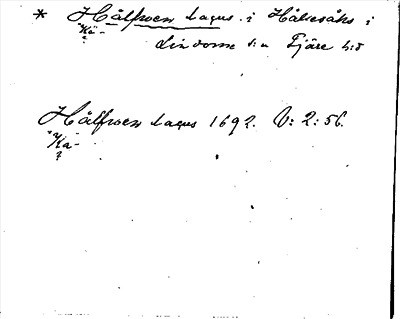 * Hålfwen Lagus. i Hålsesåks i
"Kä-
?
Lindome s:n Fjäre h:d
Hålfwen Lagus 1692. V: 2: 56.
"Kä-
?